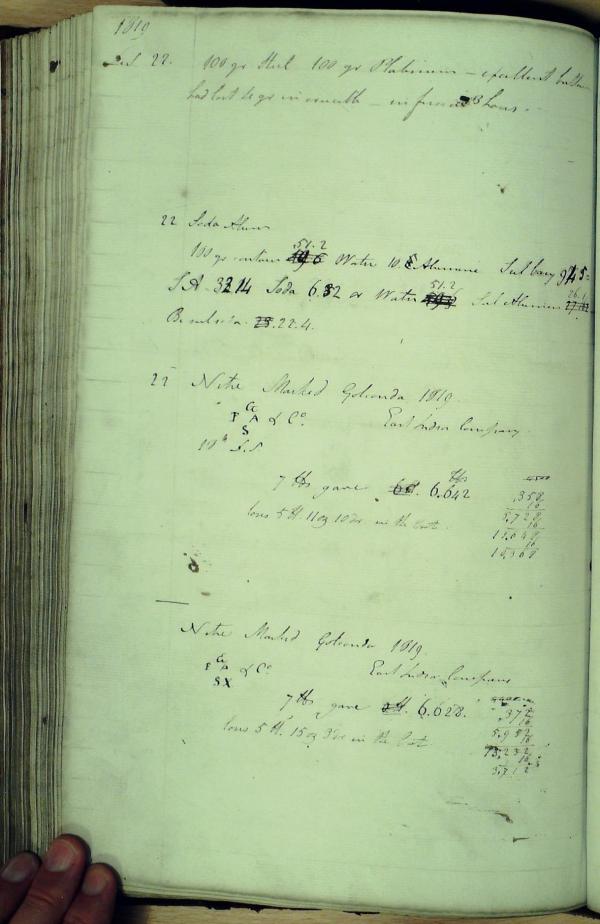 1819
22. 100 gr Steel 100 gr Platinum — excellent button
had lost gr in crucible — in furnace 3 hours
22 Soda Alum
51.2
100 gr contain Water 10. Alumine Sul bary 94.5 =
S.A. 32.14 Soda 6.32 or Water 51.2 Sul Alumine
B. sul soda 22.4.
22 Nitre Marked Golconda 1819.
Co
F A & Co. East India Company
S
10th
7 lbs gave 6.642 lbs
loss 5 lb. 11 oz 10 dr in the Cwt
.358
16
5.728
16
11.648
16
10.368
Nitre Marked Golconda 1819.
Co
F A & Co. East India Company
SX
7 lbs gave 6.628.
loss 5 lb. 15 oz 3 dr in the Cwt
.372
16
5.952
16
15.232
16
3.712